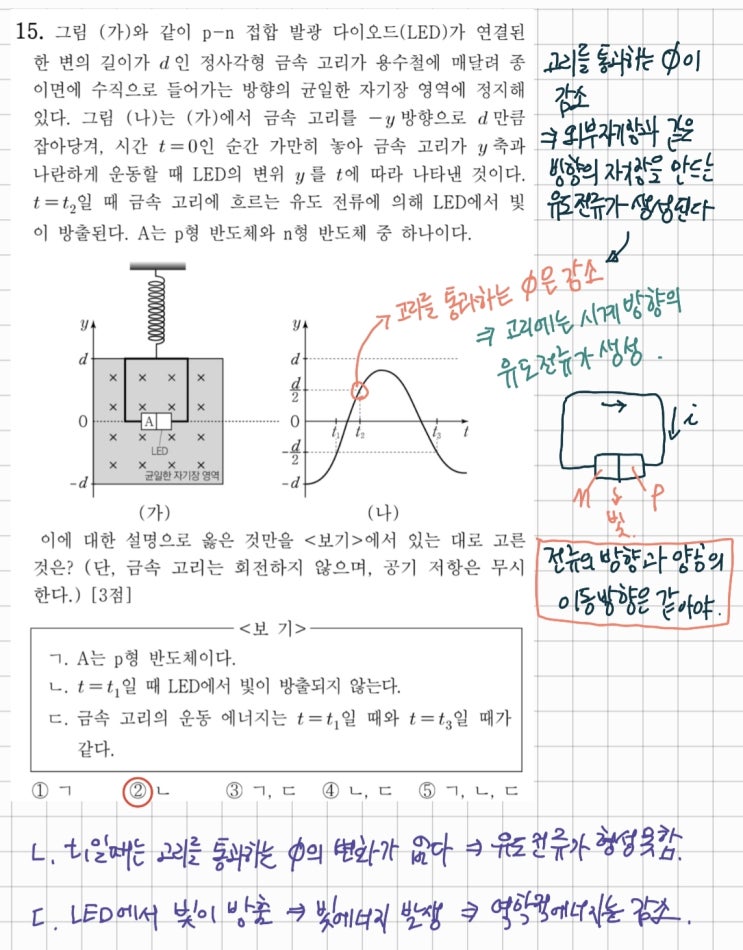 15. 그림 (가)와 같이 p-n 접합 발광 다이오드(LED)가 연결된
한 변의 길이가 d인 정사각형 금속 고리가 용수철에 매달려 종
이면에 수직으로 들어가는 방향의 균일한 자기장 영역에 정지해
있다. 그림 (나)는 (가)에서 금속 고리를 -y방향으로 d만큼
잡아당겨, 시간 t=0인 순간 가만히 놓아 금속 고리가 y축과
나란하게 운동할 때 LED의 변위 y를 t에 따라 나타낸 것이다.
t=t₂일 때 금속 고리에 흐르는 유도 전류에 의해 LED에서 빛
이 방출된다. A는 p형 반도체와 n형 반도체 중 하나이다.
고리를 통과하는 ϕ이
감소
⇒ 외부자기장과 같은
방향의 자기장을 만드는
유도전류가 생성된다
→ 고리를 통과하는 ϕ은 감소
⇒ 고리에는 시계방향의
유도전류가 생성.
y
d
0
-d
× × × ×
× × × ×
× × × ×
× × × ×
A
LED
균일한 자기장 영역
(가)
y
d
d/2
0
-d/2
-d
t₁ t₂ t₃ t
(나)
→ i
n p
빛
전류의 방향과 양공의
이동방향은 같아야.
이에 대한 설명으로 옳은 것만을 <보기>에서 있는 대로 고른
것은? (단, 금속 고리는 회전하지 않으며, 공기 저항은 무시
한다.) [3점]
<보 기>
ㄱ. A는 p형 반도체이다.
ㄴ. t=t₁일 때 LED에서 빛이 방출되지 않는다.
ㄷ. 금속 고리의 운동 에너지는 t=t₁일 때와 t=t₃일 때가
같다.
① ㄱ ② ㄴ ③ ㄱ, ㄷ ④ ㄴ, ㄷ ⑤ ㄱ, ㄴ, ㄷ
ㄴ. t₁일때는 고리를 통과하는 ϕ의 변화가 없다 ⇒ 유도전류가 형성못함.
ㄷ. LED에서 빛이 방출 ⇒ 빛에너지 발생 ⇒ 역학적에너지는 감소.